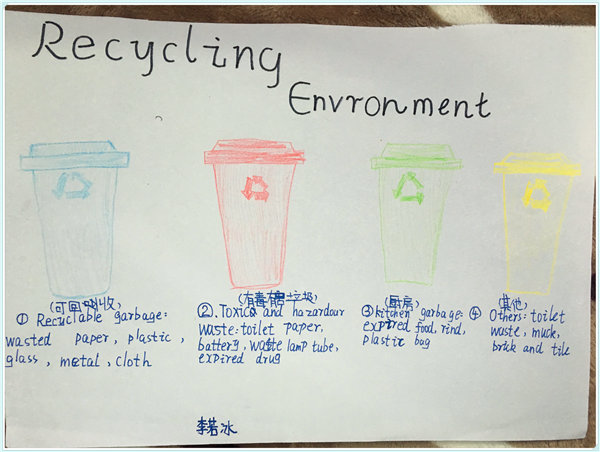 Recycling
Envronment
(可回收)
① Recyclable garbage:
wasted paper, plastic,
glass, metal, cloth
(有毒有害垃圾)
②. Toxic and hazardour
waste: toilet paper,
battery, waste lamp tube,
expired drug
(厨房)
③ kitchen garbage:
expired food, rind,
plastic bag
(其他)
④ Others: toilet
waste, muck,
brick and tile
李若冰